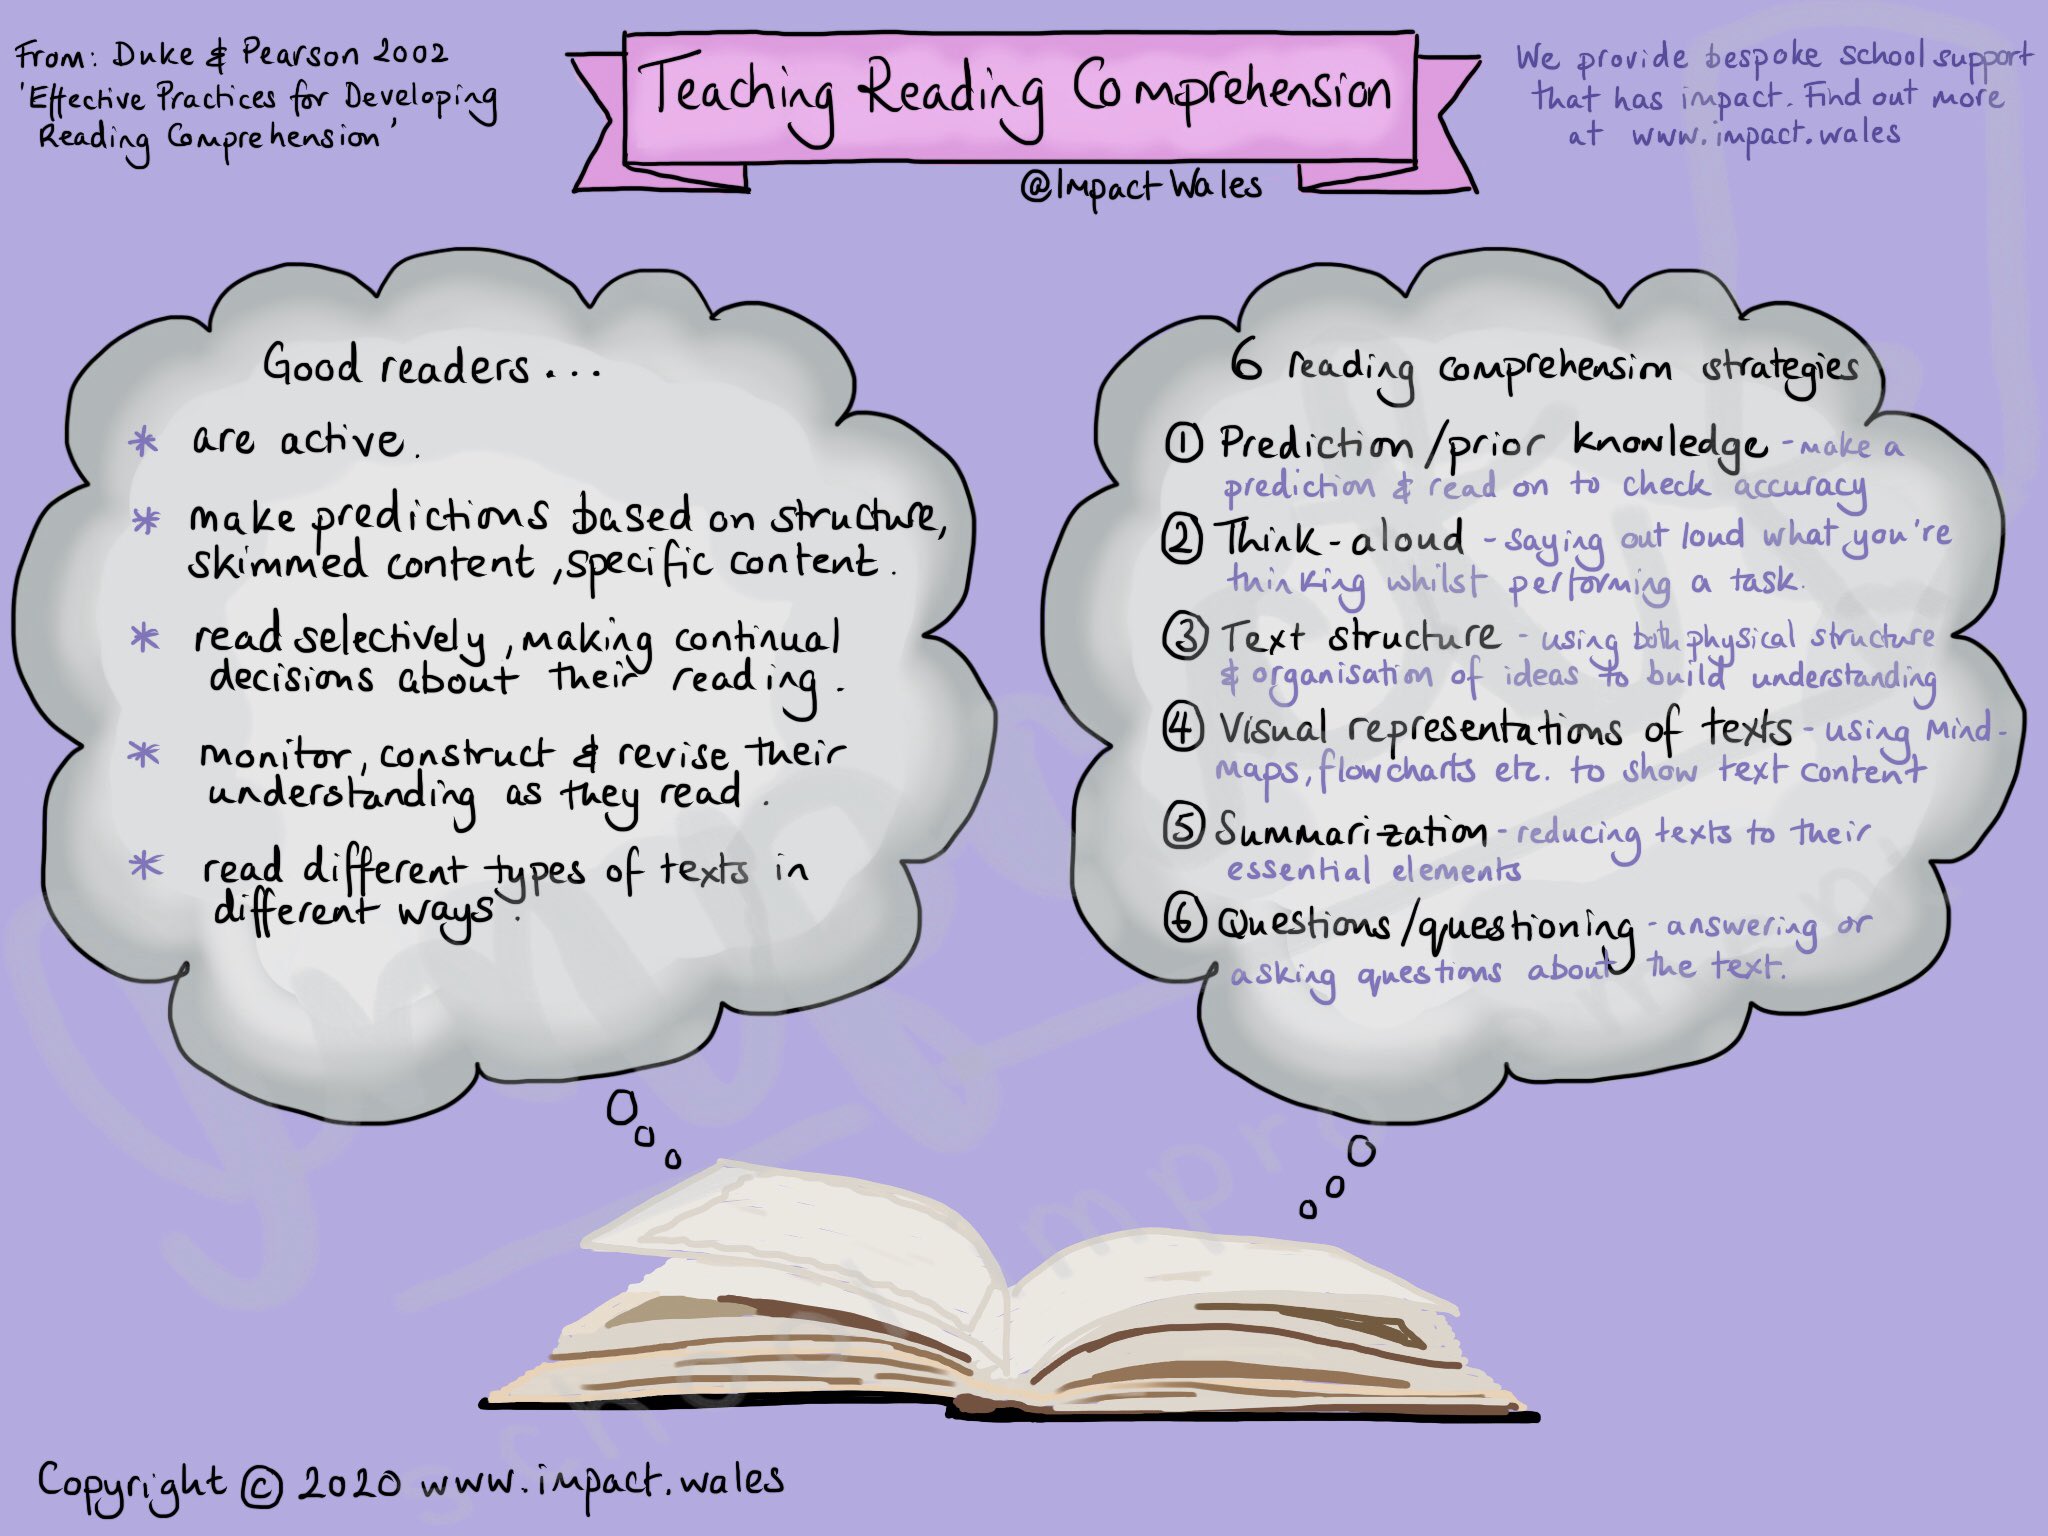 From: Duke & Pearson 2002
'Effective Practices for Developing
Reading Comprehension'
Teaching Reading Comprehension
@ImpactWales
We provide bespoke school support
that has impact. Find out more
at www.impact.wales
Good readers...
* are active.
* make predictions based on structure,
skimmed content, specific content.
* read selectively, making continual
decisions about their reading.
* monitor, construct & revise their
understanding as they read.
* read different types of texts in
different ways.
6 reading comprehension strategies
① Prediction/prior knowledge - make a
prediction & read on to check accuracy
② Think-aloud - saying out loud what you're
thinking whilst performing a task.
③ Text structure - using both physical structure
& organisation of ideas to build understanding
④ Visual representations of texts - using mind-
maps, flowcharts etc. to show text content
⑤ Summarization - reducing texts to their
essential elements
⑥ Questions/questioning - answering or
asking questions about the text.
Copyright © 2020 www.impact.wales